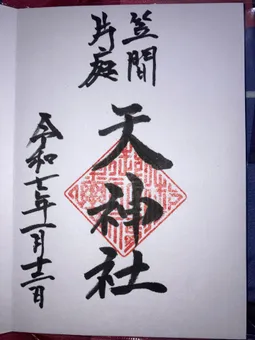 笠間
片庭
天神社
令和七年一月十二日